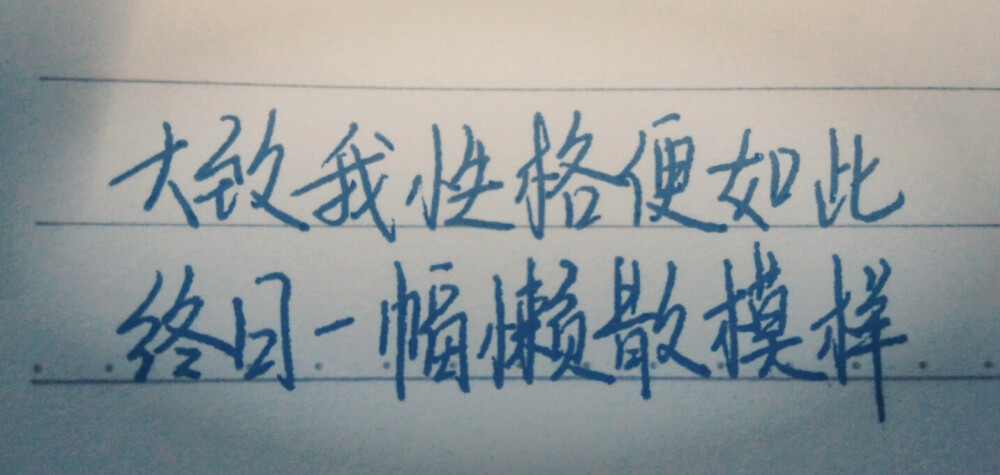 大致我性格便如此
终日一幅懒散模样